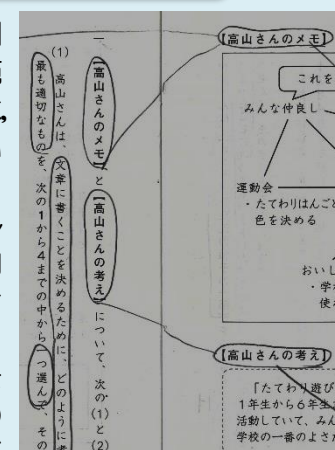 一
【高山さんのメモ】と【高山さんの考え】について、次の(1)と(2)
(1)
高山さんは、文章に書くことを決めるために、どのように考
最も適切なものを、次の1から4までの中から一つ選んで、その
【高山さんのメモ】
これを
みんな仲良し
運動会
・たてわりはんご
色を決める
おいし
・学
使
【高山さんの考え】
「たてわり遊び
1年生から6年生
活動していて、みん
学校の一番のよさ